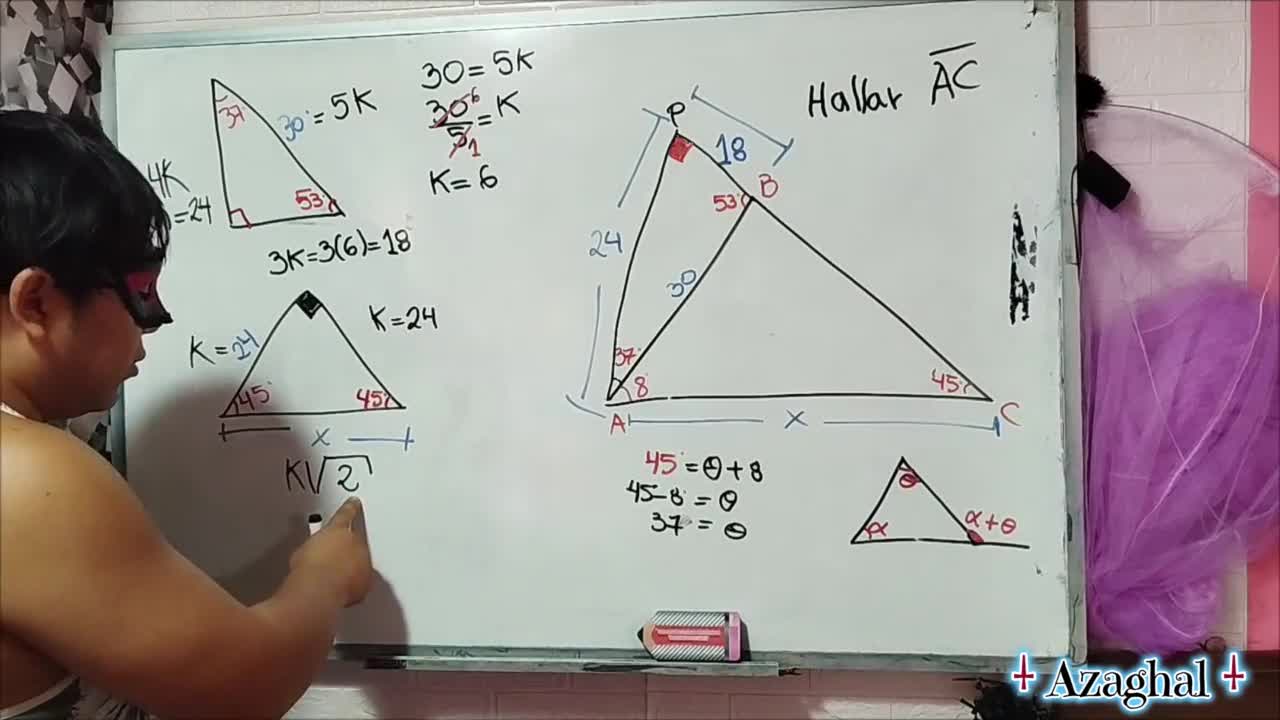 37
30 = 5K
4K
= 24
53°
3K=3(6)=18
30 = 5K
30 6
5 1
= K
K = 6
K = 24
K = 24
45°
45°
x
K√2
Hallar AC
P
18
B
53°
24
30
37°
8°
45°
A
x
C
45° = θ + 8
45-8 = θ
37 = θ
θ
α
α + θ
Azaghal